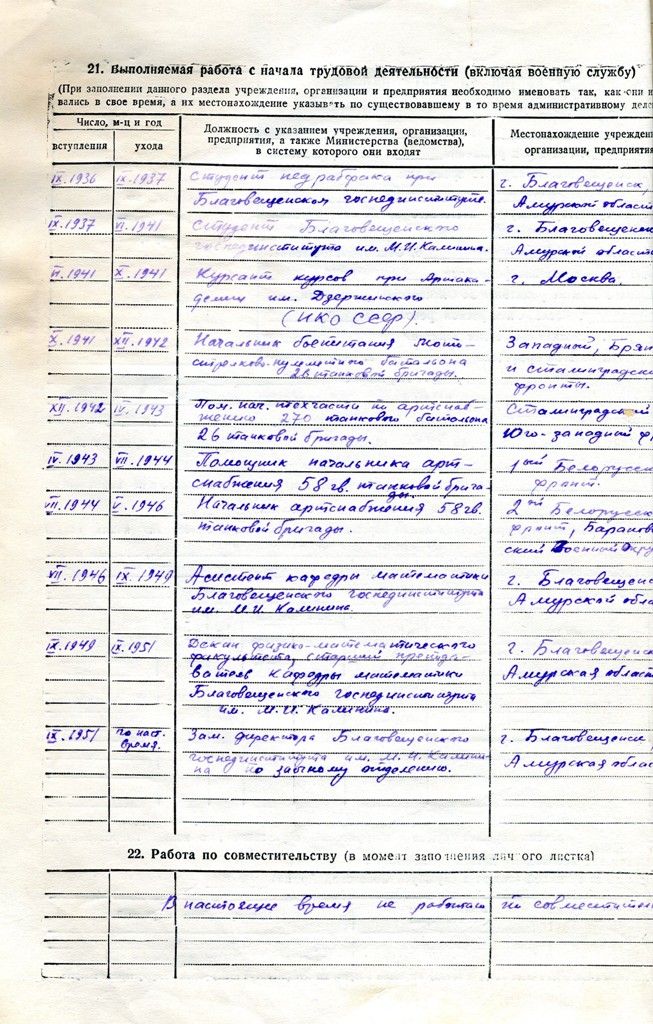 21. Выполняемая работа с начала трудовой деятельности (включая военную службу)
(При заполнении данного раздела учреждения, организации и предприятия необходимо именовать так, как они и
вались в свое время, а их местонахождение указывать по существовавшему в то время административному дел
Число, м-ц и год
вступления ухода
Должность с указанием учреждения, организации,
предприятия, а также Министерства (ведомства),
в систему которого они входят
Местонахождение учрежден
организации, предприятия
IX.1936 IX.1937 Студент педрабфака при г. Благовещенск,
Благовещенском госпединституте. Амурской област
IX.1937 VI.1941 Студент Благовещенского г. Благовещенск
госпединститута им. М.И. Калинина. Амурской област
VI.1941 X.1941 Курсант курсов при Артака- г. Москва.
демии им. Дзержинского
(НКО СССР).
X.1941 XII.1942 Начальник боепитания мото- Западный, Брян
стрелково-пулеметного батальона и сталинградск
26 танковой бригады. фронты.
XII.1942 IV.1943 Пом. нач. техчасти по артснаб- Сталинградский
жению 270 танкового батальона Юго-западный ф
26 танковой бригады.
IV.1943 VII.1944 Помощник начальника арт- 1ый Белорусск
снабжения 58 гв. танковой брига- фронт.
ды.
VII.1944 V.1946 Начальник артснабжения 58 гв. 2ой Белорусск
танковой бригады. фронт, Баранов
ский Военный Окру
VII.1946 IX.1949 Асистент кафедры математики г. Благовещенс
Благовещенского госпединститута Амурской обла
им. М.И. Калинина.
IX.1949 IX.1951 Декан физико-математического г. Благовещенск
факультета, старший препода- Амурская област
ватель кафедры математики
Благовещенского госпединститута
им. М.И. Калинина.
IX.1951 по наст. Зам. директора Благовещенского г. Благовещенск,
время. госпединститута им. М.И. Калини- Амурская облас
на по заочному отделению.
22. Работа по совместительству (в момент заполнения личного листка)
В настоящее время не работаю по совместител